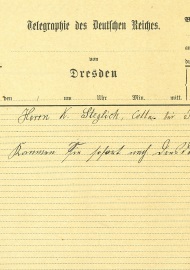 Telegraphie des Deutschen Reiches.
B
von
Dresden
den um Uhr Min. mitt.
Herrn K. Steglich, Cölln bei
Kommen Sie sofort nach